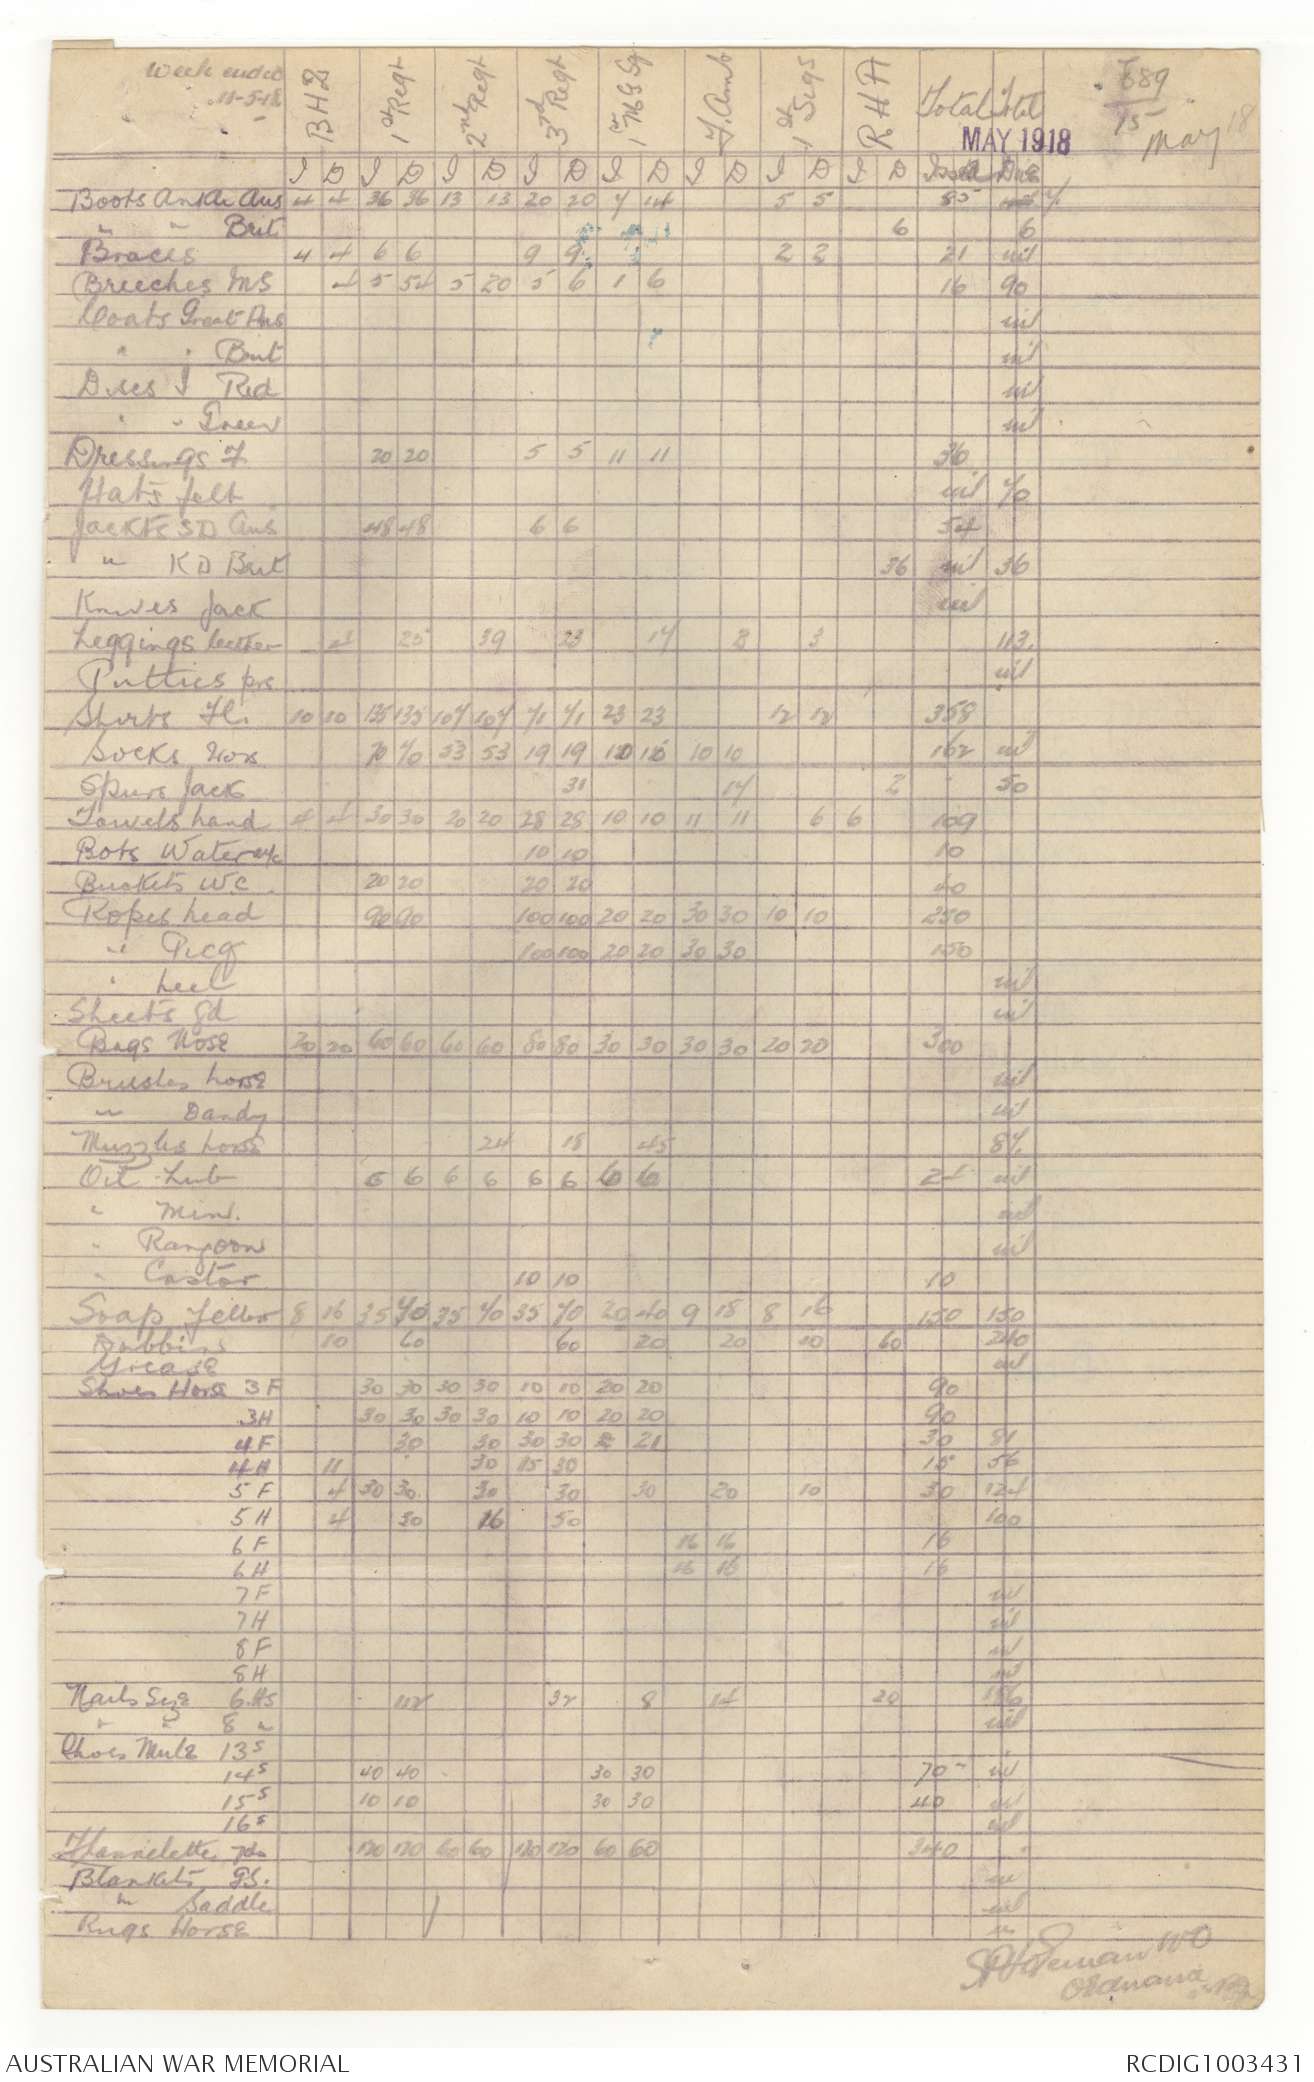 Week ended
11-5-18
BHQ 1st Regt 2nd Regt 3rd Regt 1st MG Sq F. Amb 1st Sigs RHA Total Total
689
15
May 18
MAY 1918
I D I D I D I D I D I D I D I D Issued Due
Boots Ankle Aus 4 4 36 36 13 13 20 20 7 14 5 5 85 7
" " Brit 6 6
Braces 4 4 6 6 9 9 2 2 21 nil
Breeches MS 4 5 54 5 20 5 6 1 6 16 90
Coats Great Aus nil
" " Brit nil
Discs I Red nil
" " Green nil
Dressings F 20 20 5 5 11 11 36
Hats felt nil 70
Jackets SD Aus 48 48 6 6 54
" KD Brit 36 nil 36
Knives Jack nil
Leggings leather 4 25 39 23 14 8 3 113.
Putties prs nil
Shirts Fl. 10 10 135 135 107 107 71 71 23 23 12 12 358
Socks wors 70 70 53 53 19 19 10 10 10 10 162 nil
Spurs Jack 31 17 2 50
Towels hand 4 4 30 30 20 20 28 28 10 10 11 11 6 6 109
Bots Water 10 10 10
Buckets W.C. 20 20 20 20 40
Ropes head 90 90 100 100 20 20 30 30 10 10 250
" Picq 100 100 20 20 30 30 150
" heel nil
Sheets Gd nil
Bags Nose 20 20 60 60 60 60 80 80 30 30 30 30 20 20 300
Brushes horse nil
" Dandy nil
Muzzles horse 24 18 45 87.
Oil Lub 6 6 6 6 6 6 6 6 24 nil
" Min. nil
" Rangoon nil
" Castor 10 10 10
Soap Yellow 8 16 35 70 35 70 35 70 20 40 9 18 8 16 150 150
Dubbins 10 60 60 20 20 10 60 240
Grease nil
Shoes Horse 3 F 30 30 30 30 10 10 20 20 90
3H 30 30 30 30 10 10 20 20 90
4F 30 30 30 30 21 30 81
4H 11 30 15 30 15 56
5 F 4 30 30 30 30 30 20 10 30 124
5 H 4 30 16 50 100
6 F 16 16 16
6 H 16 16 16
7 F nil
7 H nil
8 F nil
8 H nil
Nails Size 6 Hs 112 32 8 14 20 186
" " 8 " nil
Shoes Mule 13s
14s 40 40 30 30 70 nil
15s 10 10 30 30 40 nil
16s nil
Flannelette yds 120 120 60 60 120 120 60 60 340
Blankets GS. nil
" Saddle nil
Rugs Horse
WO
Ordnance
AUSTRALIAN WAR MEMORIAL RCDIG1003431